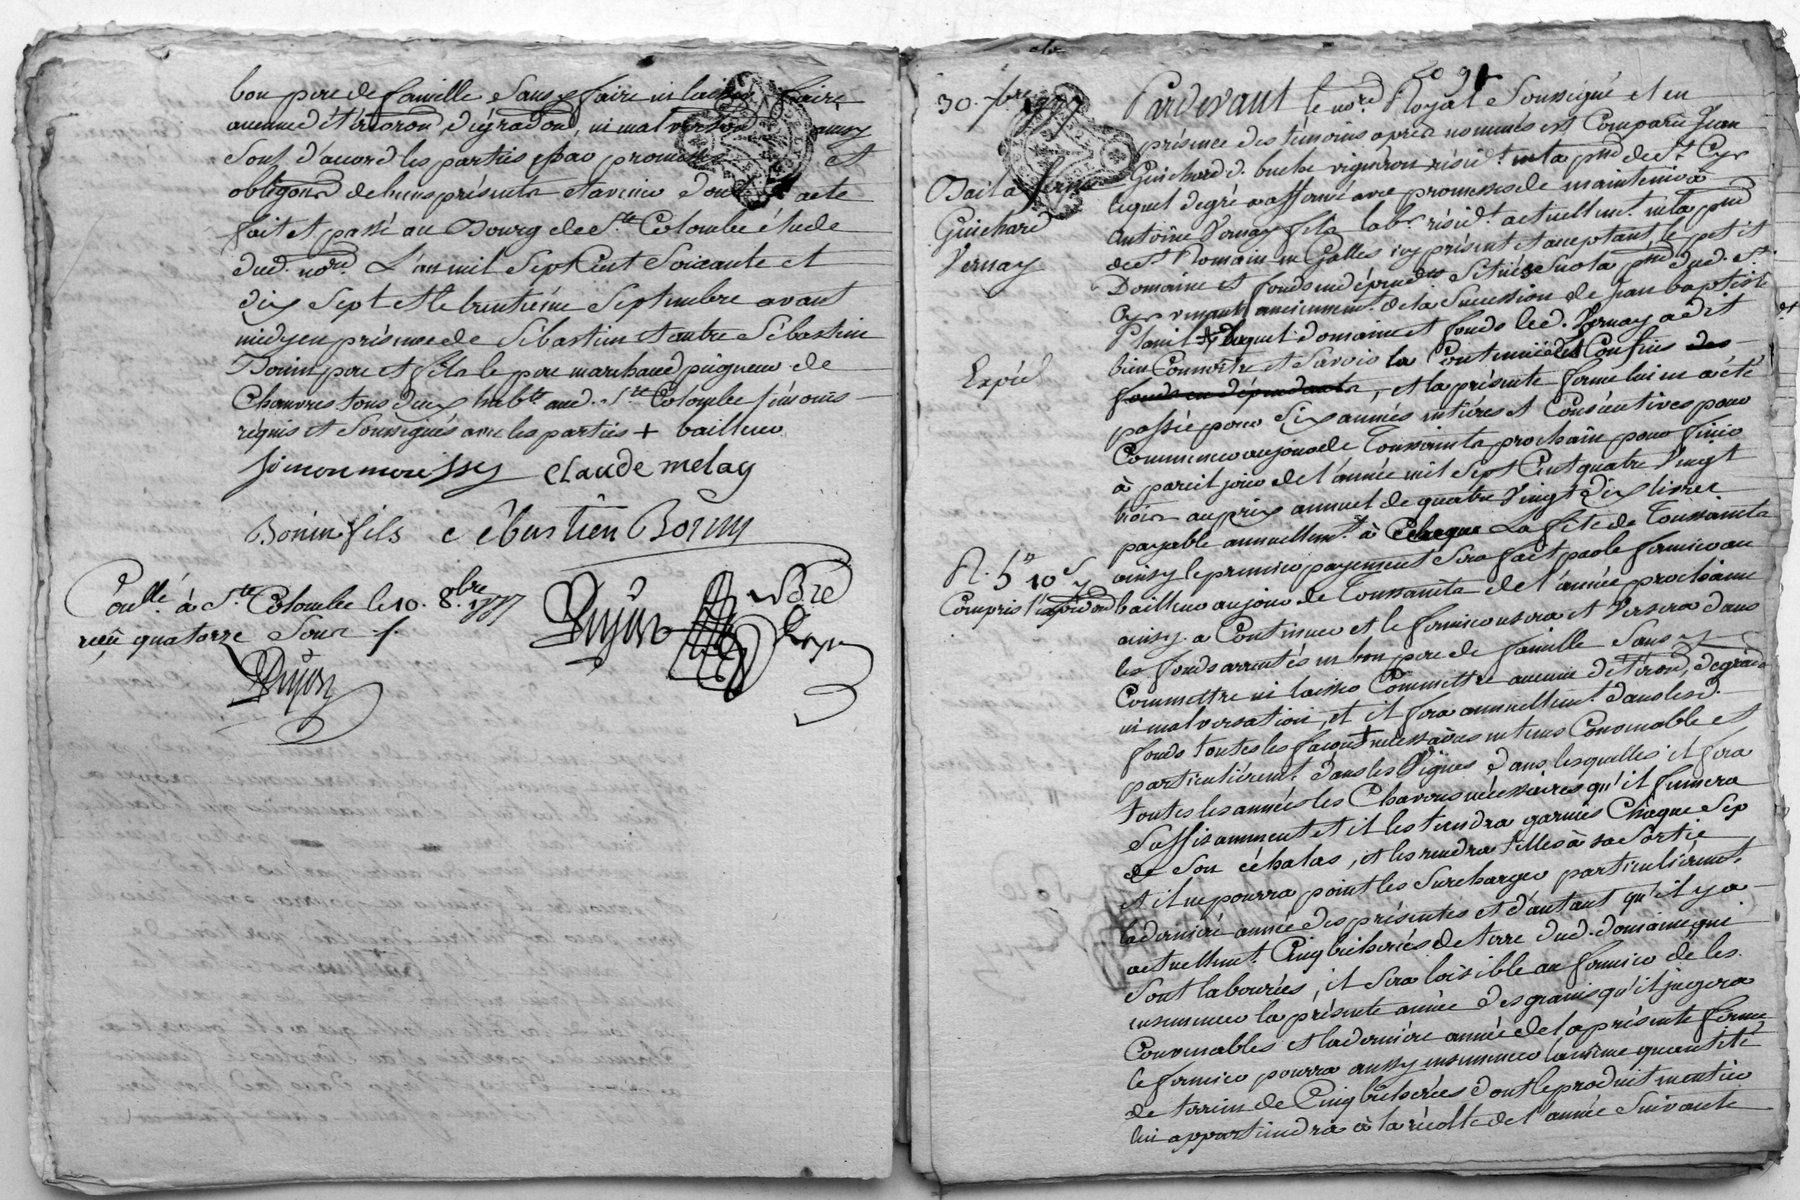 bon pere de famille Sans y faire ni laisser faire
aucune déterioron dégradon, ni malverson aussy
Sont d'acord les parties par promesses et
obligons de biens présents et avenir dont acte
fait et passé au Bourg de Ste Colombe étude
dud. nore L'an mil Sept Cent Soixante et
dix Sept et le trentieme Septembre avant
midy en présence de Sébastien et autre Sébastien
Bonin pere et fils le pere marchand peigneur de
Chanvres tous deux habts aud. Ste Colombe témoins
réquis et Soussignés avec les parties + bailleur
Simon moissy Claude melay
Bonin fils Sébastien Bonin
Conllé à Ste Colombe le 10. 8bre 1777
reçu quatorze Sous
Dujas
Dujas
nore
Royal
30. 7bre 1777
Bail a ferme
Guichard
Vernay
Expéd
R. 5ll 10 s
Compris l'expedon
Pardevant le nore Royal Soussigné et en
présence des témoins après nommés est Comparu Jean
Guichard d. buche vigneron résidt en la psse de St Cyr
lequel degré a affermé avec promesses de maintenir à
Antoine Vernay fils labr résidt actuellemt en la psse
de St Romain en Galles icy présent et acceptant le petit
Domaine et fonds en dépendts Situés Sur la psse dud. St
Cyr venants anciennemt de la Succession de Jean baptiste
Planil + duquel domaine et fonds led. Vernay a dit
bien Connoitre et Savoir la Contenue et Confins des
fonds en dépendants, et la présente ferme lui en a été
passée pour Six années entières et Consécutives pour
Commencer au jour de Toussaints prochain pour finir
à pareil jour de l'année mil Sept Cent quatre Vingt
trois au prix annuel de quatre Vingt Dix livres
payable annuellemt à Chaque La fête de Toussaints
ainsy le premier payement Sera fait par le fermier au
bailleur au jour de Toussaints de l'année prochaine
ainsy a Continuer et le fermier usera et Versera dans
les fonds arrentés en bon pere de famille Sans y
Commettre ni laisser Commettre aucune détériond, dégradon
ni malversation, et il fera annuellemt dans lesd.
fonds toutes les façons + nécessaires en tems Convenable et
particulièremt dans les Vignes dans lesquelles il fera
toutes les années les Chavons nécessaires qu'il fumera
Suffisamment et il les tiendra garnies Chaque Sep
de Son échalas, et les rendra telles à sa Sortie
et il ne pourra point les Surcharger particulièremt
la derniere année des présentes et d'autant qu'il y a
actuellemt Cinq bicherées de terre dud. domaine qui
Sont labourées, il Sera loisible au fermier de les
ensemencer la présente année des grains qu'il jugera
Convenables et la derniere année de la présente ferme
le fermier pourra aussy ensemencer la même quantité
de terrein de Cinq bicherées dont le produit en entier
lui appartiendra à la récolte de l'année Suivante